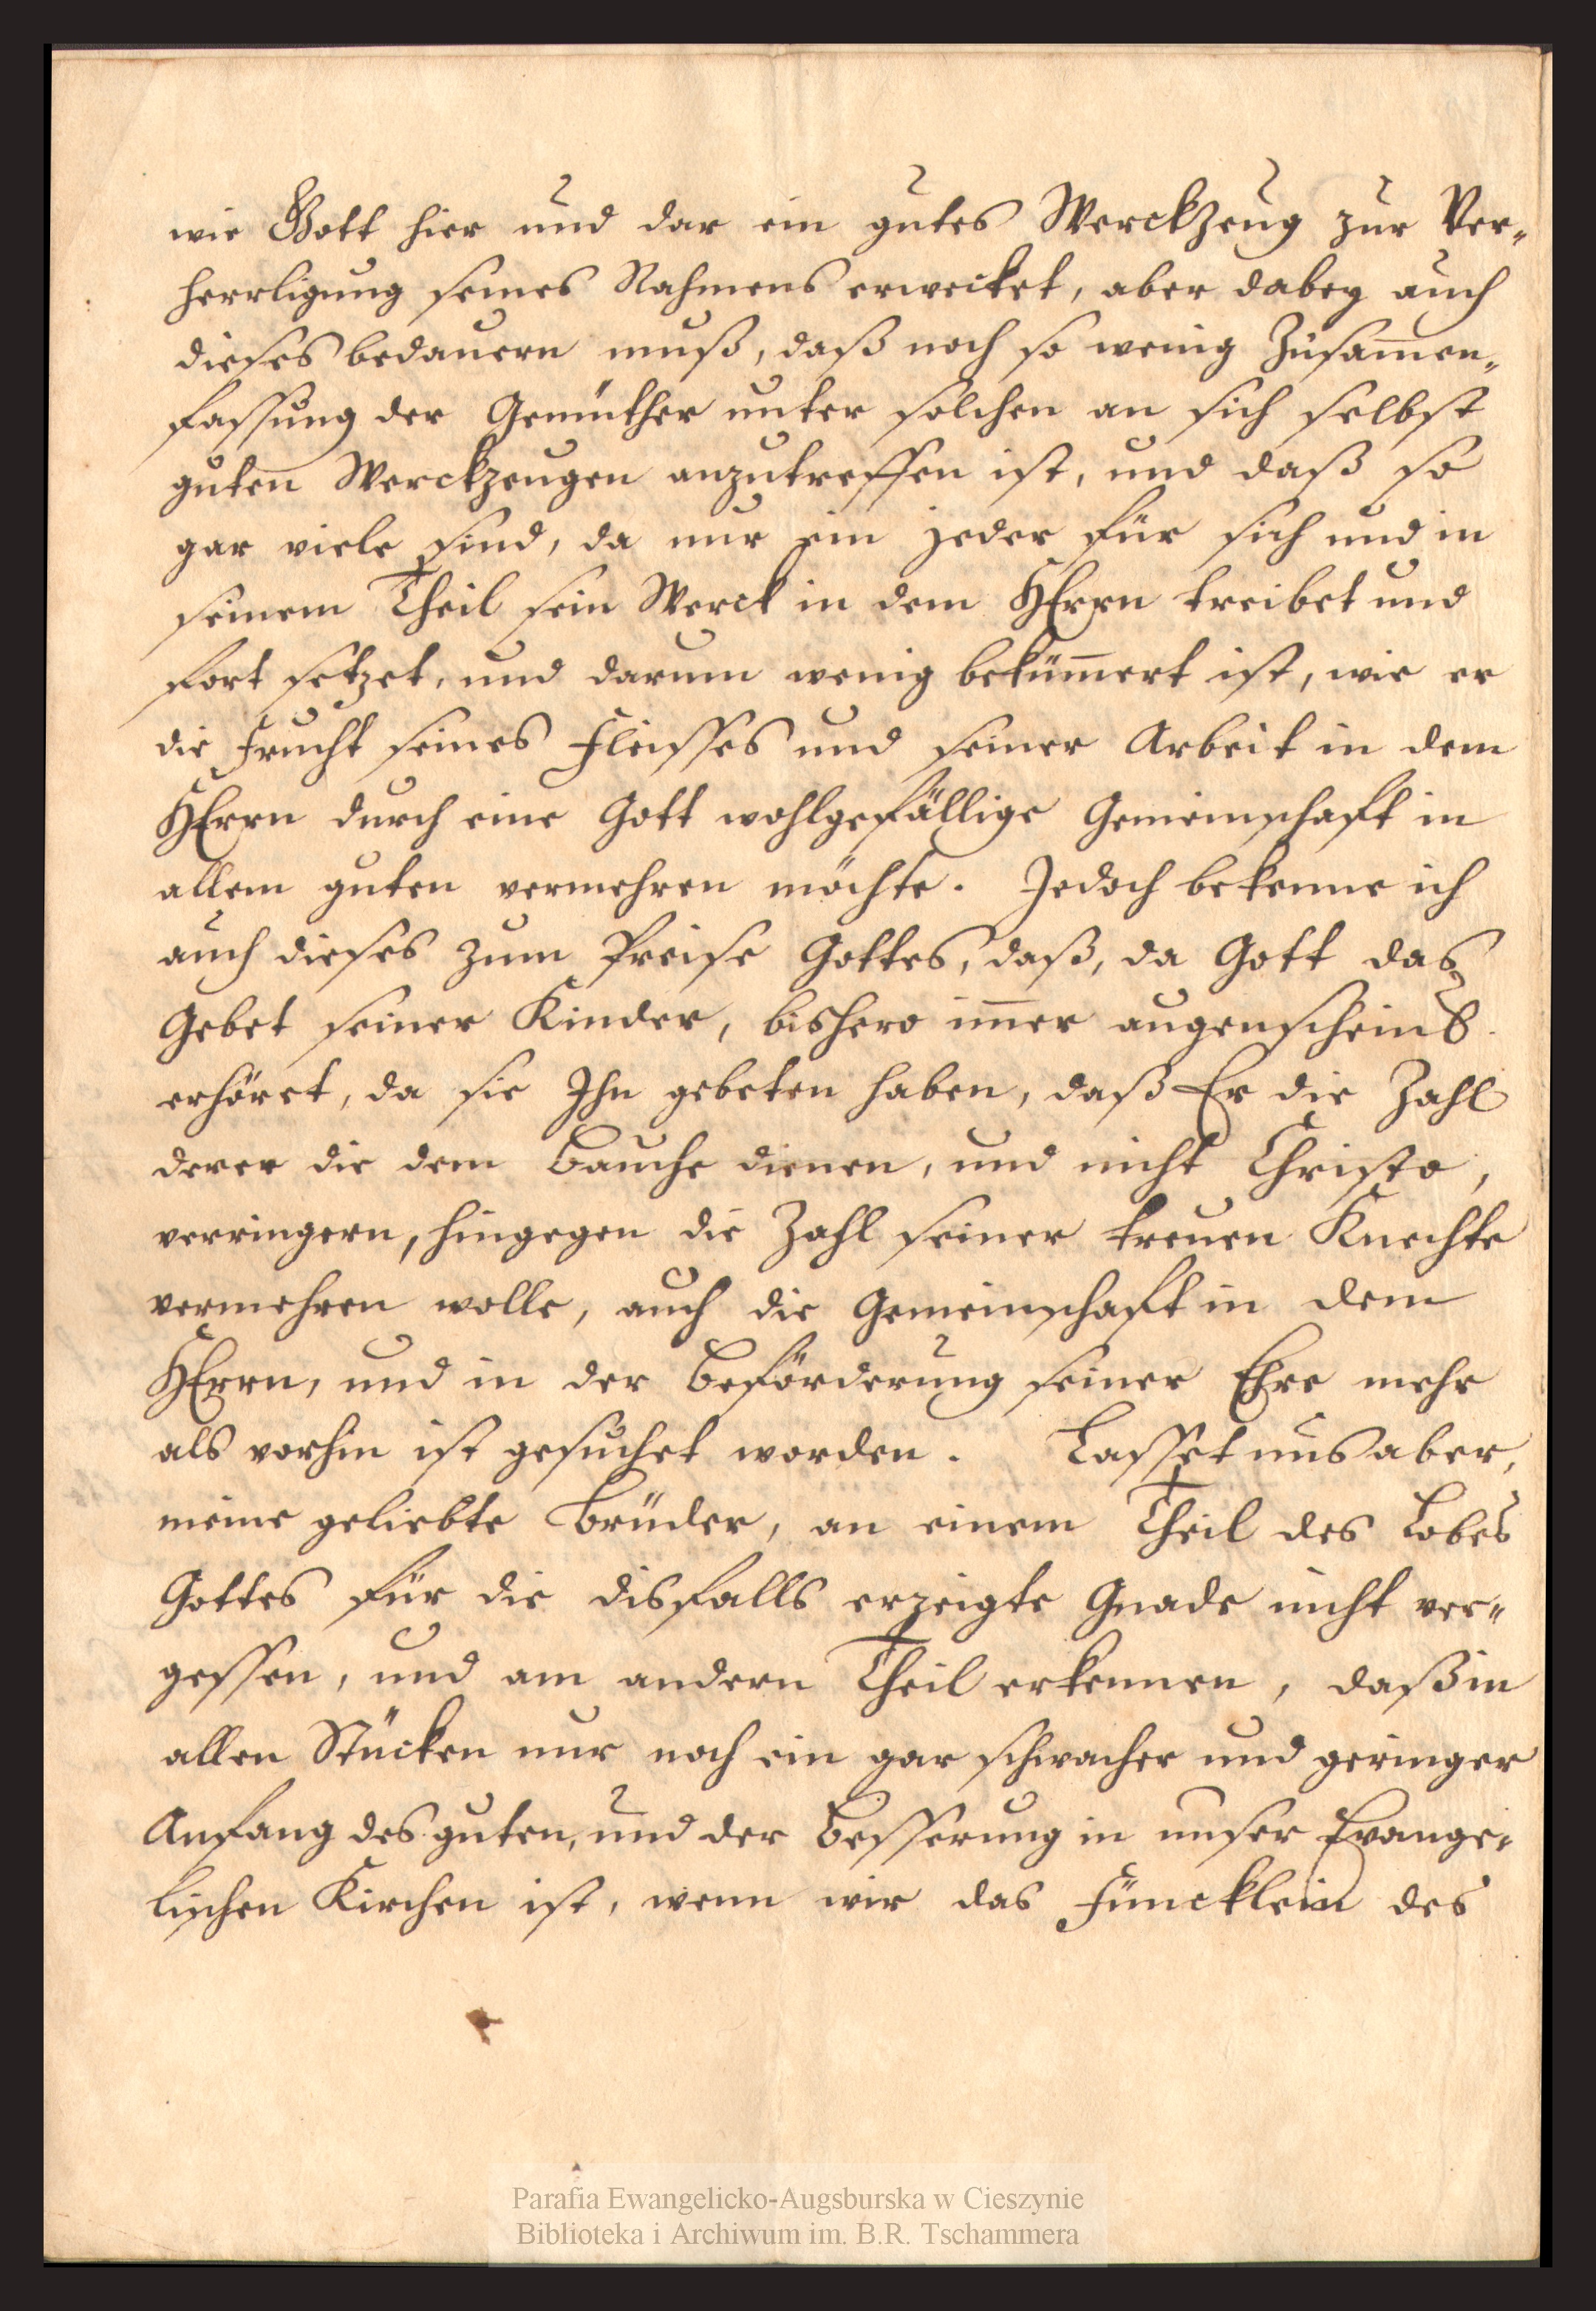 wie Gott hier und dar ein gutes Werckzeug zur Ver„
herrligung seines Nahmens erwecket, aber dabey auch
dieses bedauern muß, daß noch so wenig Zusam̅en„
fassung der Gemüther unter solchen an sich selbst
guten Werckzeugen anzutreffen ist, und daß so
gar viele sind, da nur ein jeder für sich und in
seinem Theil sein Werck in dem HErrn treibet und
fort setzet, und darum wenig beküm̅ert ist, wie er
die Frucht seines Fleisses und seiner Arbeit in dem
HErrn durch eine Gott wohlgefällige Gemeinschaft in
allem guten vermehren möchte. Jedoch bekenne ich
auch dieses zum Preise Gottes, daß, da Gott das
Gebet seiner Kinder, bishero im̅er augenscheinl.
erhöret, da sie Ihn gebeten haben, daß Er die Zahl
derer die dem Bauche dienen, und nicht Christo,
verringern, hingegen die Zahl seiner treuen Knechte
vermehren wolle, auch die Gemeinschaft in dem
HErrn, und in der Beförderung seiner Ehre mehr
als vorhin ist gesuchet worden. Lasset uns aber,
meine geliebte Brüder, an einem Theil des Lobes
Gottes für die disfalls erzeigte Gnade nicht ver„
gessen, und am andern Theil erkennen, daß in
allen Stücken nur noch ein gar schwacher und geringer
Anfang des guten, und der Besserung in unser Evange„
lischen Kirchen ist, wenn wir das Füncklein des
Parafia Ewangelicko-Augsburska w Cieszynie
Biblioteka i Archiwum im. B.R. Tschammera